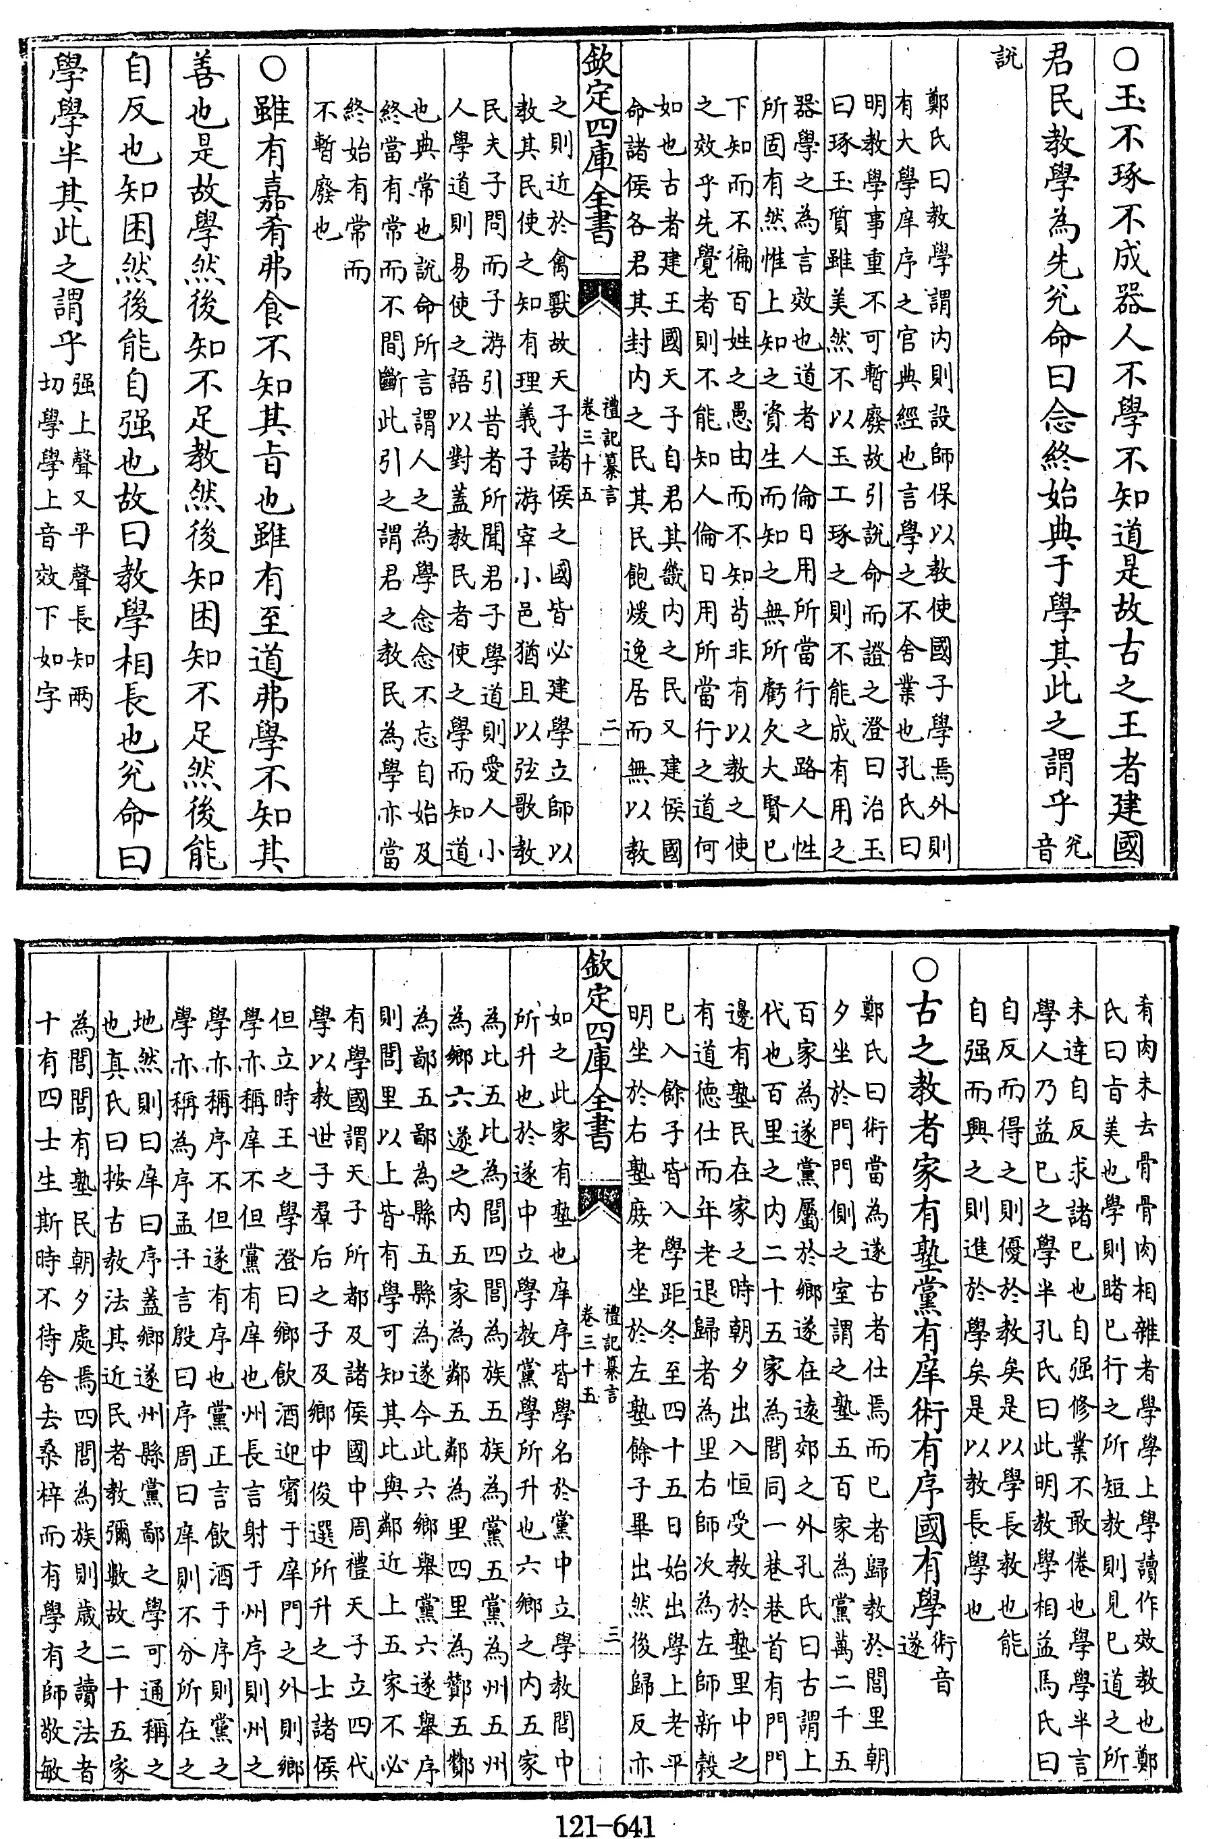 ○玉不琢不成器人不學不知道是故古之王者建國
君民教學為先兊命曰念終始典于學其此之謂乎兊
音
說
鄭氏曰教學謂内則設師保以教使國子學焉外則
有大學庠序之官典經也言學之不舍業也孔氏曰
明教學事重不可暫廢故引說命而證之澄曰治玉
曰琢玉質雖美然不以玉工琢之則不能成有用之
器學之為言效也道者人倫日用所當行之路人性
所固有然惟上知之資生而知之無所虧欠大賢已
下知而不徧百姓之愚由而不知茍非有以教之使
之效乎先覺者則不能知人倫日用所當行之道何
如也古者建王國天子自君其畿内之民又建侯國
命諸侯各君其封内之民其民飽煖逸居而無以教
欽定四庫全書
禮記纂言
卷三十五
二
之則近於禽獸故天子諸侯之國皆必建學立師以
教其民使之知有理義子游宰小邑猶且以弦歌教
民夫子問而子游引昔者所聞君子學道則愛人小
人學道則易使之語以對蓋教民者使之學而知道
也典常也說命所言謂人之為學念念不忘自始及
終當有常而不間斷此引之謂君之教民為學亦當
終始有常而
不暫廢也
○雖有嘉肴弗食不知其旨也雖有至道弗學不知其
善也是故學然後知不足教然後知困知不足然後能
自反也知困然後能自强也故曰教學相長也兊命曰
學學半其此之謂乎强上聲又平聲長知兩
切學學上音效下如字
肴肉未去骨骨肉相雜者學學上學讀作效教也鄭
氏曰旨美也學則睹已行之所短教則見已道之所
未達自反求諸已也自强修業不敢倦也學學半言
學人乃益已之學半孔氏曰此明教學相益馬氏曰
自反而得之則優於教矣是以學長教也能
自强而興之則進於學矣是以教長學也
○古之教者家有塾黨有庠術有序國有學術音
遂
鄭氏曰術當為遂古者仕焉而已者歸教於閭里朝
夕坐於門門側之室謂之塾五百家為黨萬二千五
百家為遂黨屬於鄉遂在遠郊之外孔氏曰古謂上
代也百里之内二十五家為閭同一巷巷首有門門
邊有塾民在家之時朝夕出入恒受教於塾里中之
有道德仕而年老退歸者為里右師次為左師新穀
巳入餘子皆入學距冬至四十五日始出學上老平
明坐於右塾庶老坐於左塾餘子畢出然後歸反亦
欽定四庫全書
禮記纂言
卷三十五
三
如之此家有塾也庠序皆學名於黨中立學教閭中
所升也於遂中立學教黨學所升也六鄉之内五家
為比五比為閭四閭為族五族為黨五黨為州五州
為鄉六遂之内五家為鄰五鄰為里四里為酇五酇
為鄙五鄙為縣五縣為遂今此六鄉舉黨六遂舉序
則閭里以上皆有學可知其比與鄰近上五家不必
有學國謂天子所都及諸侯國中周禮天子立四代
學以教世子羣后之子及鄉中俊選所升之士諸侯
但立時王之學澄曰鄉飲酒迎賓于庠門之外則鄉
學亦稱庠不但黨有庠也州長言射于州序則州之
學亦稱序不但遂有序也黨正言飲酒于序則黨之
學亦稱為序孟子言殷曰序周曰庠則不分所在之
地然則曰庠曰序蓋鄉遂州縣黨鄙之學可通稱之
也真氏曰按古教法其近民者教彌數故二十五家
為閭閭有塾民朝夕處焉四閭為族則歲之讀法者
十有四士生斯時不待舍去桑梓而有學有師敬敏
121-641